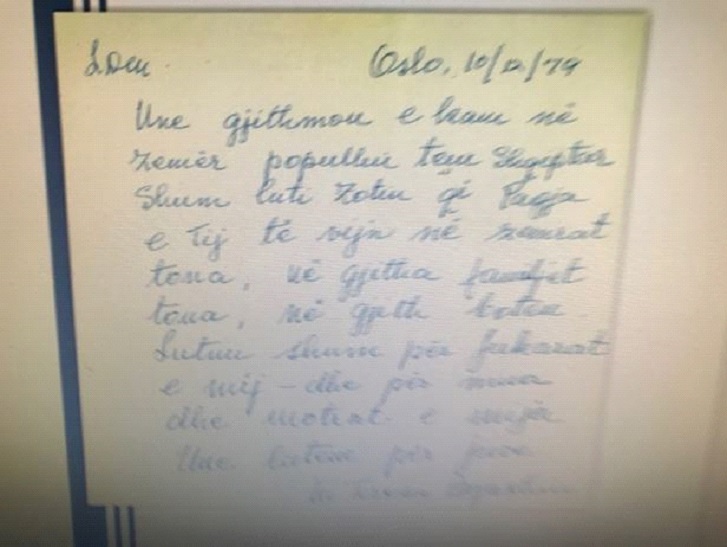 LDM Oslo, 10/12/79
Une gjithmon e kam në
zemër popullin tem Shqyptar
Shum luti Zotin që Paqja
e Tij të vijn në zemrat
tona, në gjitha familjet
tona, në gjith boten
Lutnu shum për fukarat
e mij - dhe për mua
dhe motrat e mija
Une lutem për juve